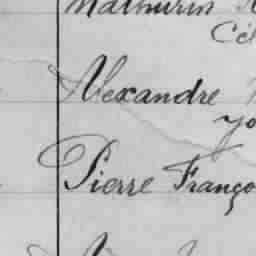 Mathurin
Alexandre
Pierre Franço